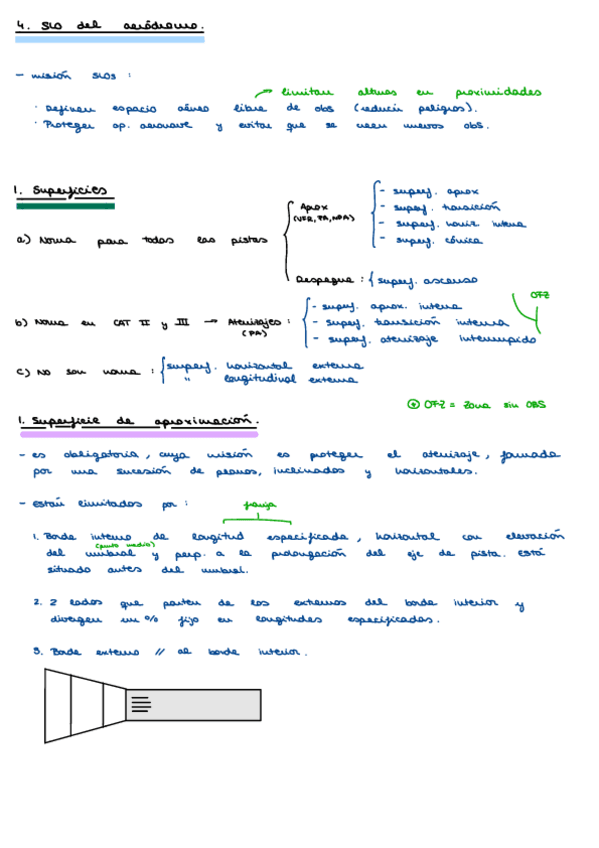 4. SLO del aeródromo.
- misión SLOs :
limitan alturas en proximidades
· Definen espacio aéreo libre de obs (reducir peligros).
· Proteger op. aeronave y evitar que se creen nuevos obs.
1. Superficies
a) Norma para todas las pistas
Aprox
(VFR, PA, NPA)
- superf. aprox
- superf. transición
- superf. horiz interna
- superf. cónica
Despegue : superf. ascenso
b) Norma en CAT II y III → Aterrizajes :
(PA)
- superf. aprox. interna
- superf. transición interna
- superf. aterrizaje interrumpido
OFZ
c) No son norma : superf. horizontal externa
" longitudinal externa
* OFZ = Zona sin OBS
1. Superficie de aproximación.
- es obligatoria, cuya misión es proteger el aterrizaje, formada
por una sucesión de planos, inclinados y horizontales.
- Están limitados por :
franja
1. Borde interno de longitud especificada, horizontal con elevación
(punto medio)
del umbral y perp. a la prolongación del eje de pista. Está
situado antes del umbral.
2. 2 lados que parten de los extremos del borde interior y
divergen un % fijo en longitudes especificadas.
3. Borde externo // al borde interior.